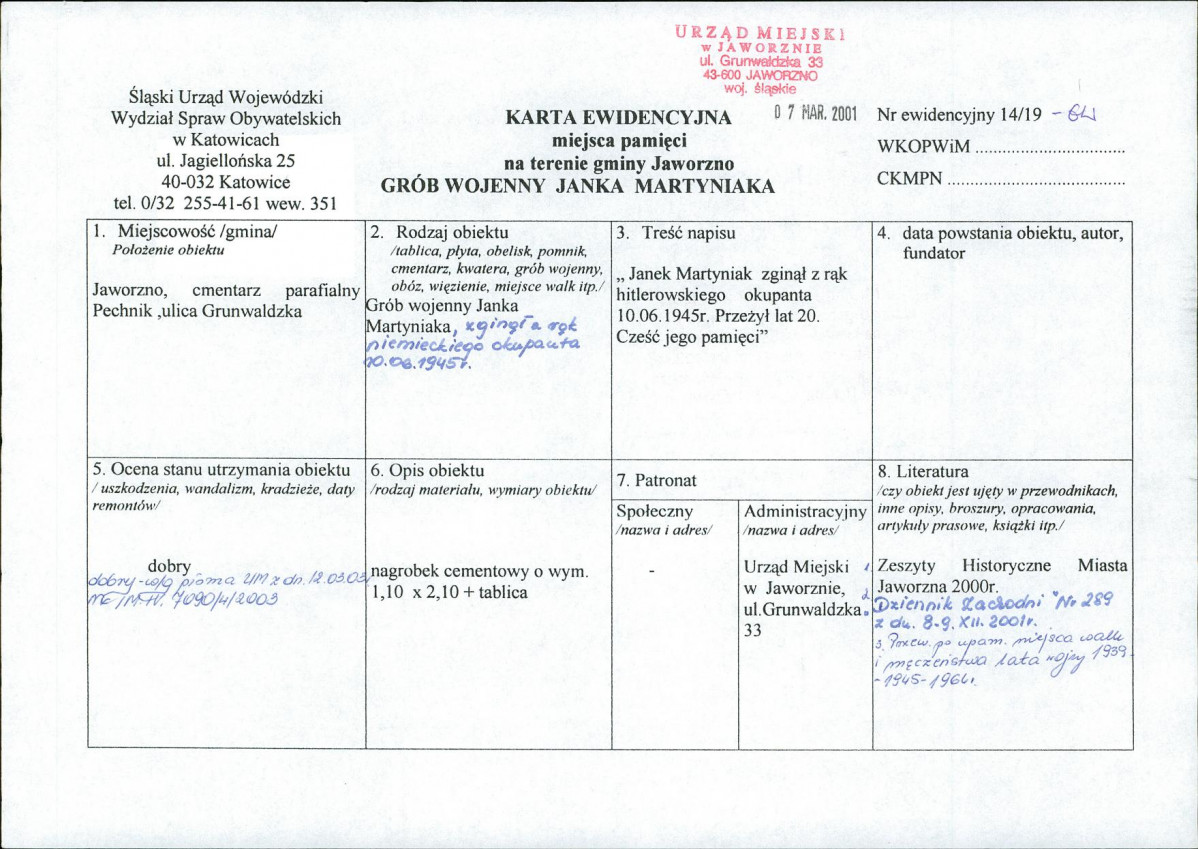 URZĄD MIEJSKI
w JAWORZNIE
ul. Grunwaldzka 33
43-600 JAWORZNO
woj. śląskie
0 7 MAR. 2001
Śląski Urząd Wojewódzki
Wydział Spraw Obywatelskich
w Katowicach
ul. Jagiellońska 25
40-032 Katowice
tel. 0/32 255-41-61 wew. 351
KARTA EWIDENCYJNA
miejsca pamięci
na terenie gminy Jaworzno
GRÓB WOJENNY JANKA MARTYNIAKA
Nr ewidencyjny 14/19
WKOPWiM ................................
CKMPN ......................................
1. Miejscowość /gmina/
Położenie obiektu
Jaworzno, cmentarz parafialny
Pechnik ,ulica Grunwaldzka
2. Rodzaj obiektu
/tablica, płyta, obelisk, pomnik,
cmentarz, kwatera, grób wojenny,
obóz, więzienie, miejsce walk itp./
Grób wojenny Janka
Martyniaka, zginął z rąk
niemieckiego okupanta
10.06.1945r.
3. Treść napisu
„ Janek Martyniak zginął z rąk
hitlerowskiego okupanta
10.06.1945r. Przeżył lat 20.
Cześć jego pamięci”
4. data powstania obiektu, autor,
fundator
5. Ocena stanu utrzymania obiektu
/ uszkodzenia, wandalizm, kradzieże, daty
remontów/
dobry
dobry - w/g pisma UM z dn. 12.03.03
7090/4/2003
6. Opis obiektu
/rodzaj materiału, wymiary obiektu/
nagrobek cementowy o wym.
1,10 x 2,10 + tablica
7. Patronat
Społeczny
/nazwa i adres/
-
Administracyjny
/nazwa i adres/
Urząd Miejski
w Jaworznie,
ul.Grunwaldzka
33
8. Literatura
/czy obiekt jest ujęty w przewodnikach,
inne opisy, broszury, opracowania,
artykuły prasowe, książki itp./
1. Zeszyty Historyczne Miasta
Jaworzna 2000r.
2. "Dziennik Zachodni" Nr 289
z dn. 8-9. XII. 2001r.
3. Przew. po upam. miejsca walk
i męczeństwa lata wojny 1939-
-1945-1964r.